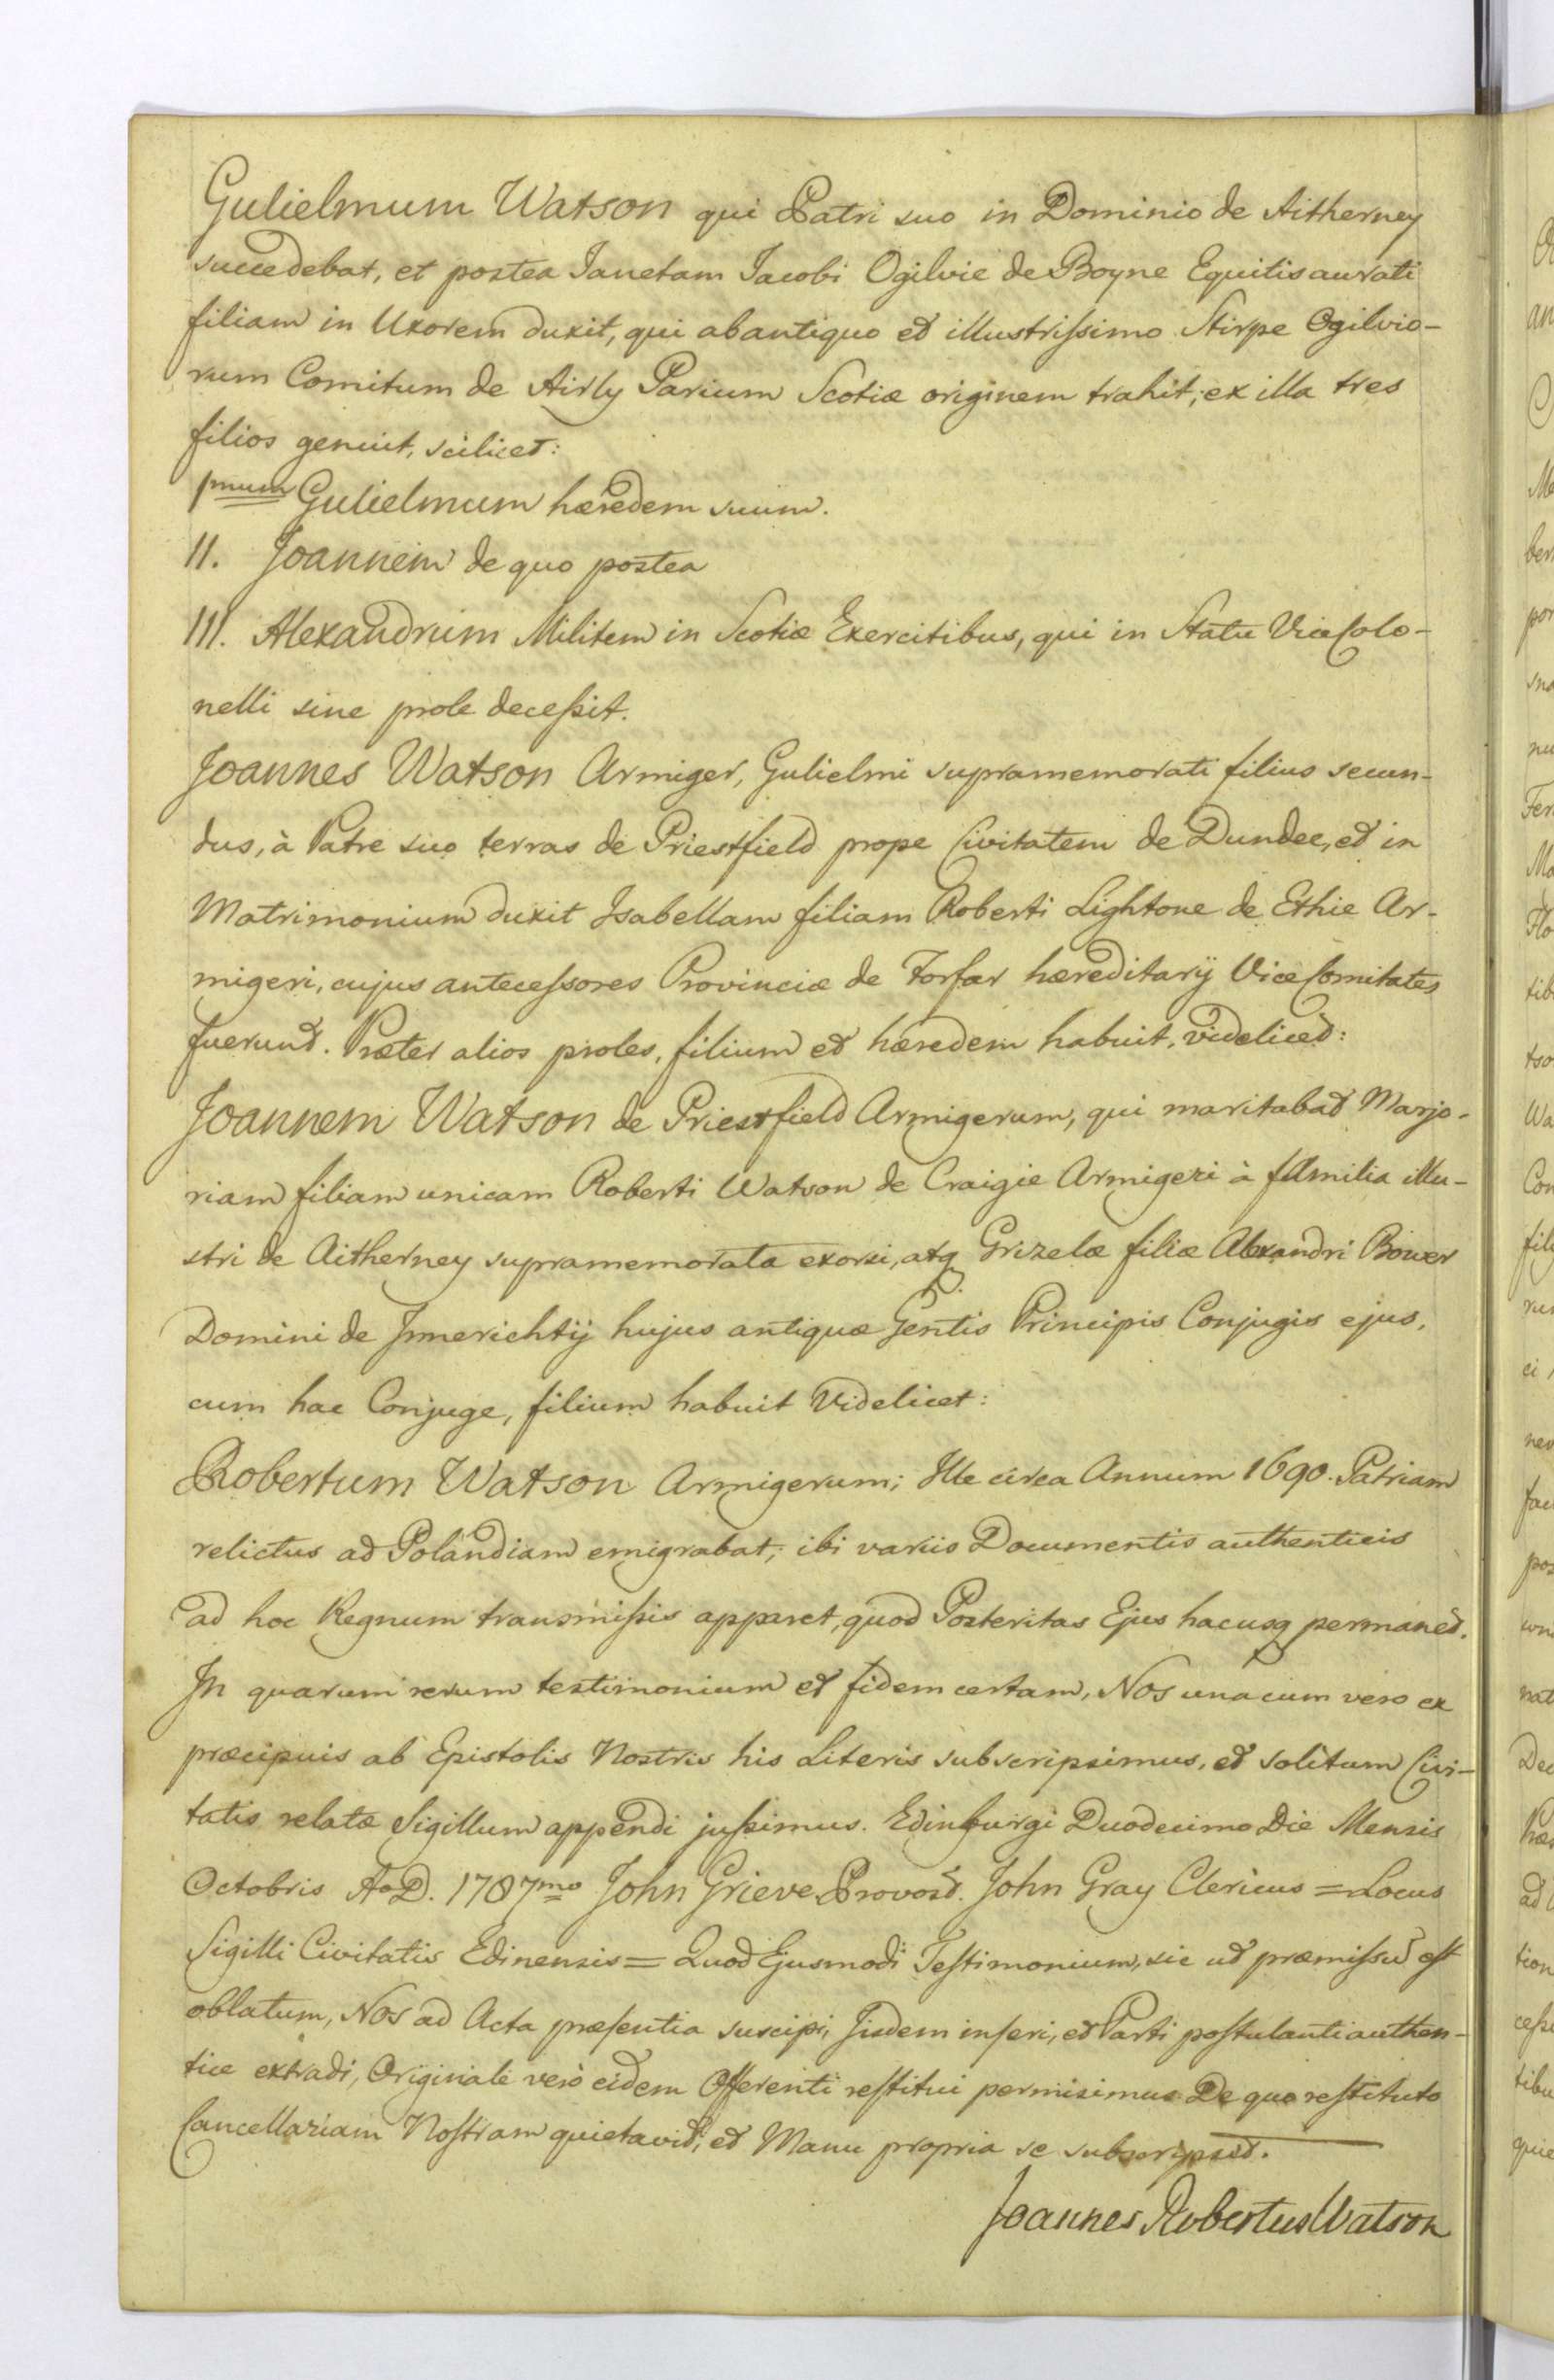 Gulielmum Watson qui Patri suo in Dominio de Aitherney
succedebat, et postea Janetam Jacobi Ogilvie de Boyne Equitis aurati
filiam in Uxorem duxit, qui ab antiquo et illustrissimo Stirpe Ogilvio-
rum Comitum de Airly Parium Scotiæ originem trahit; ex illa tres
filios genuit, scilicet:
1mum Gulielmum hæredem suum.
II. Joannem de quo postea
III. Alexandrum Militem in Scotiæ Exercitibus, qui in Statu ViceColo-
nelli sine prole decessit.
Joannes Watson Armiger, Gulielmi supramemorati filius secun-
dus, à Patre suo terras de Priestfield prope Civitatem de Dundee, et in
Matrimonium duxit Isabellam filiam Roberti Lightone de Ethie Ar-
migeri, cujus antecessores Provinciæ de Forfar hæreditarij ViceComitates
fuerunt. Præter alios proles, filium et hæredem habuit, videlicet:
Joannem Watson de Priestfield Armigerum, qui maritabat Marjo-
riam filiam unicam Roberti Watson de Craigie Armigeri à familia illu-
stri de Aitherney supramemorata exorsi, atq Grizelæ filiæ Alexandri Bower
Domini de Innerichtij hujus antiquæ Gentis Principis Conjugis ejus,
cum hac Conjuge, filium habuit Videlicet:
Robertum Watson Armigerum; Ille circa Annum 1690. Patriam
relictus ad Polandiam emigrabat; ibi variis Documentis authenticis
ad hoc Regnum transmissis apparet, quod Posteritas Ejus hacusq permanet.
In quarum rerum testimonium et fidem certam, Nos una cum vero ex
præcipuis ab Epistolis Nostris his Literis subscripsimus, et solitum Civi-
tatis relatæ Sigillum appendi jussimus. Edinburgi Duodecimo Die Mensis
Octobris Ao D. 1787mo John Grieve Provost. John Gray Clericus = Locus
Sigilli Civitatis Edinensis = Quod Ejusmodi Testimonium, sic ut præmissu est
oblatum, Nos ad Acta præsentia suscipi, Jisdem inseri, et Parti postulanti authen-
tice extradi, Originale verò eidem Offerenti restitui permisimus. De quo restituto
Cancellariam Nostram quietavit, et Manu propria se subscripsit.
Joannes Robertus Watson